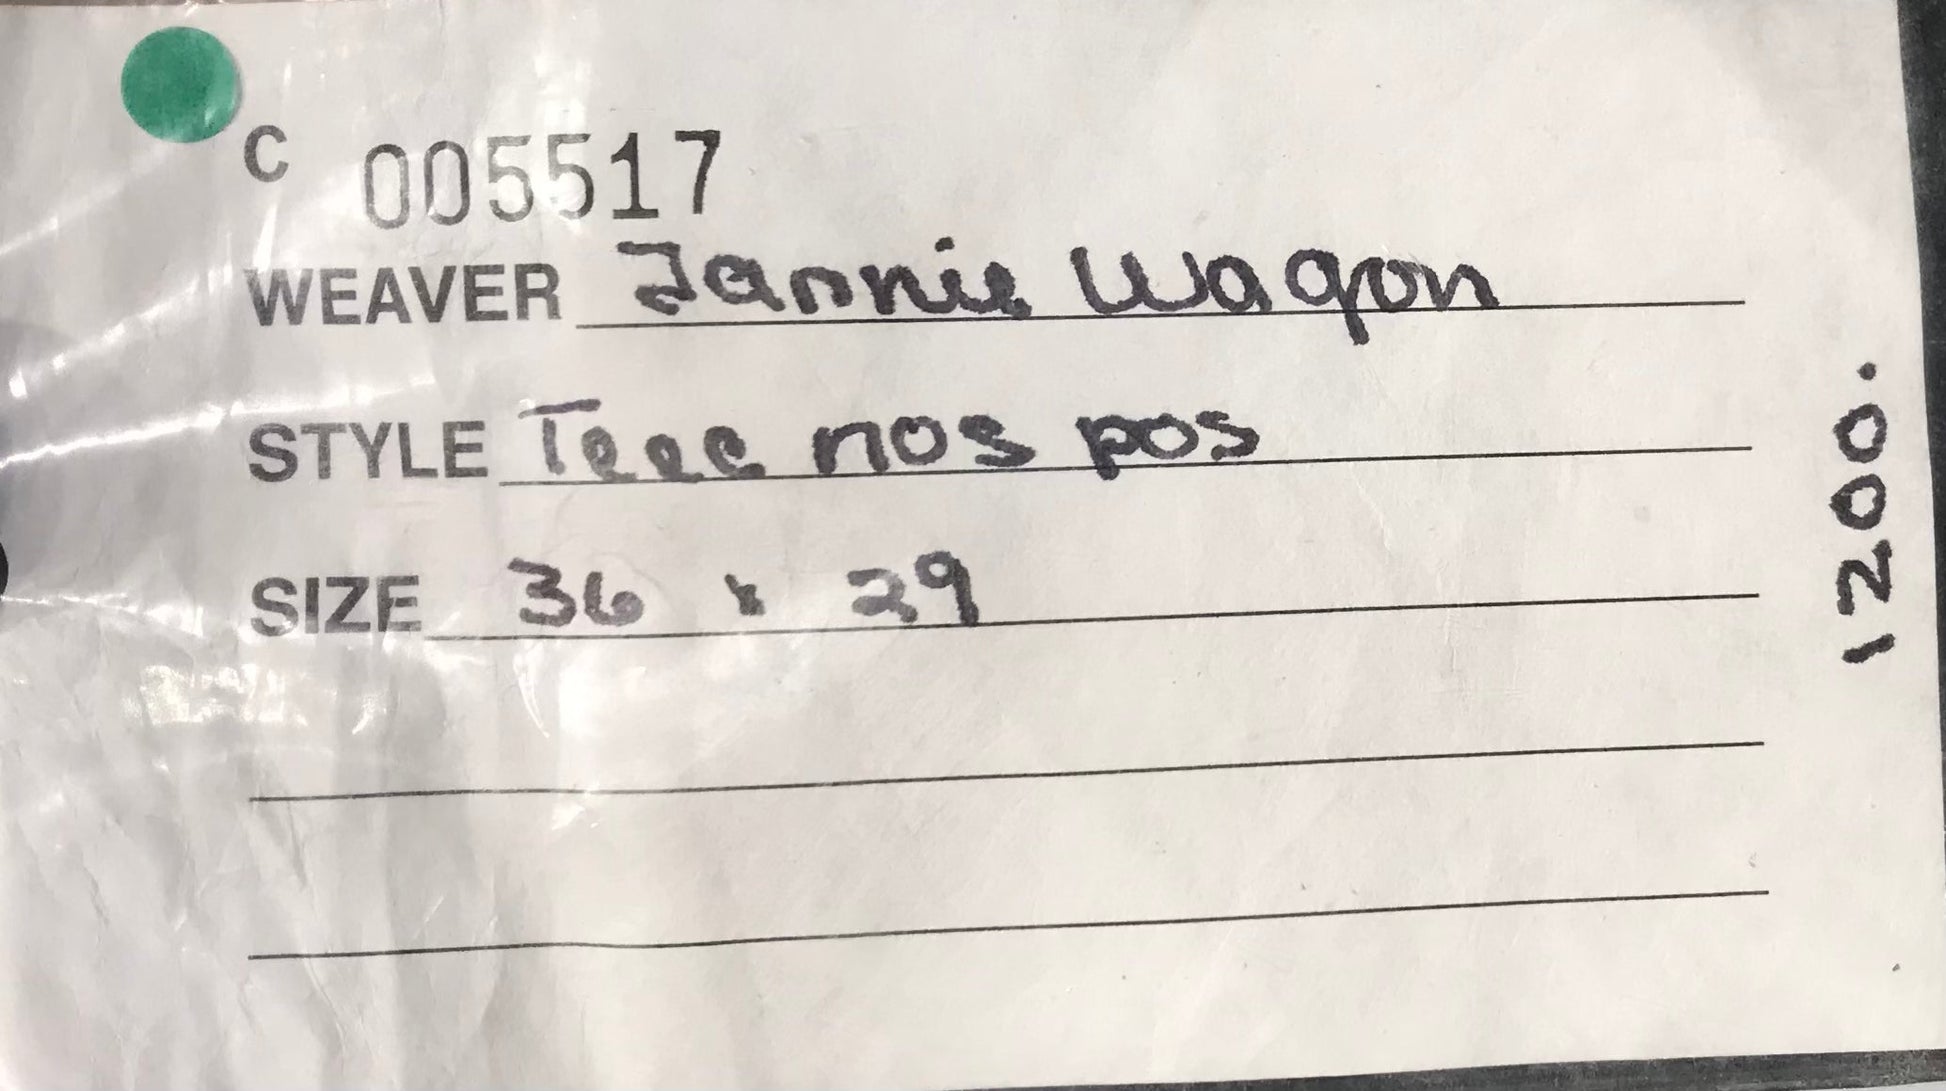 C 005517
WEAVER Jannie Wagon
STYLE Teec nos pos
SIZE 36 x 29
1200.